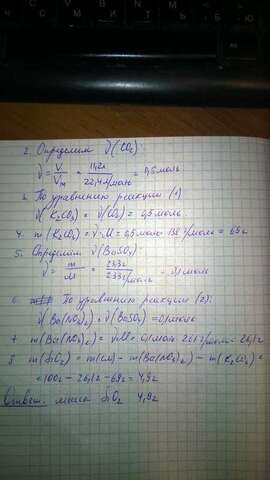 2. Определим ν(CO₂):
ν = V/Vm = 11,2л/22,4л/моль = 0,5 моль
3. По уравнению реакции (1)
ν(K₂CO₃) = ν(CO₂) = 0,5 моль
4. m(K₂CO₃) = ν·M = 0,5 моль·138 г/моль = 69г
5. Определим ν(BaSO₄)
ν = m/M = 23,3г/233г/моль = 0,1 моль
6. По уравнению реакции (2):
ν(Ba(NO₃)₂) = ν(BaSO₄) = 0,1 моль
7. m(Ba(NO₃)₂) = ν·M = 0,1 моль·261 г/моль = 26,1г
8. m(SiO₂) = m(см) - m(Ba(NO₃)₂) - m(K₂CO₃) =
= 100г - 26,1г - 69г = 4,9г
Ответ: масса SiO₂ 4,9г